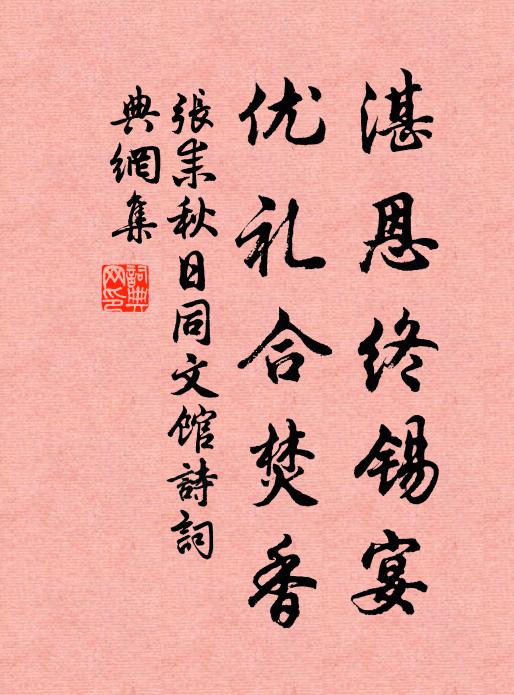 湛恩终锡宴
优礼合焚香
張耒秋日同文館詩詞
典網集
詞典网印